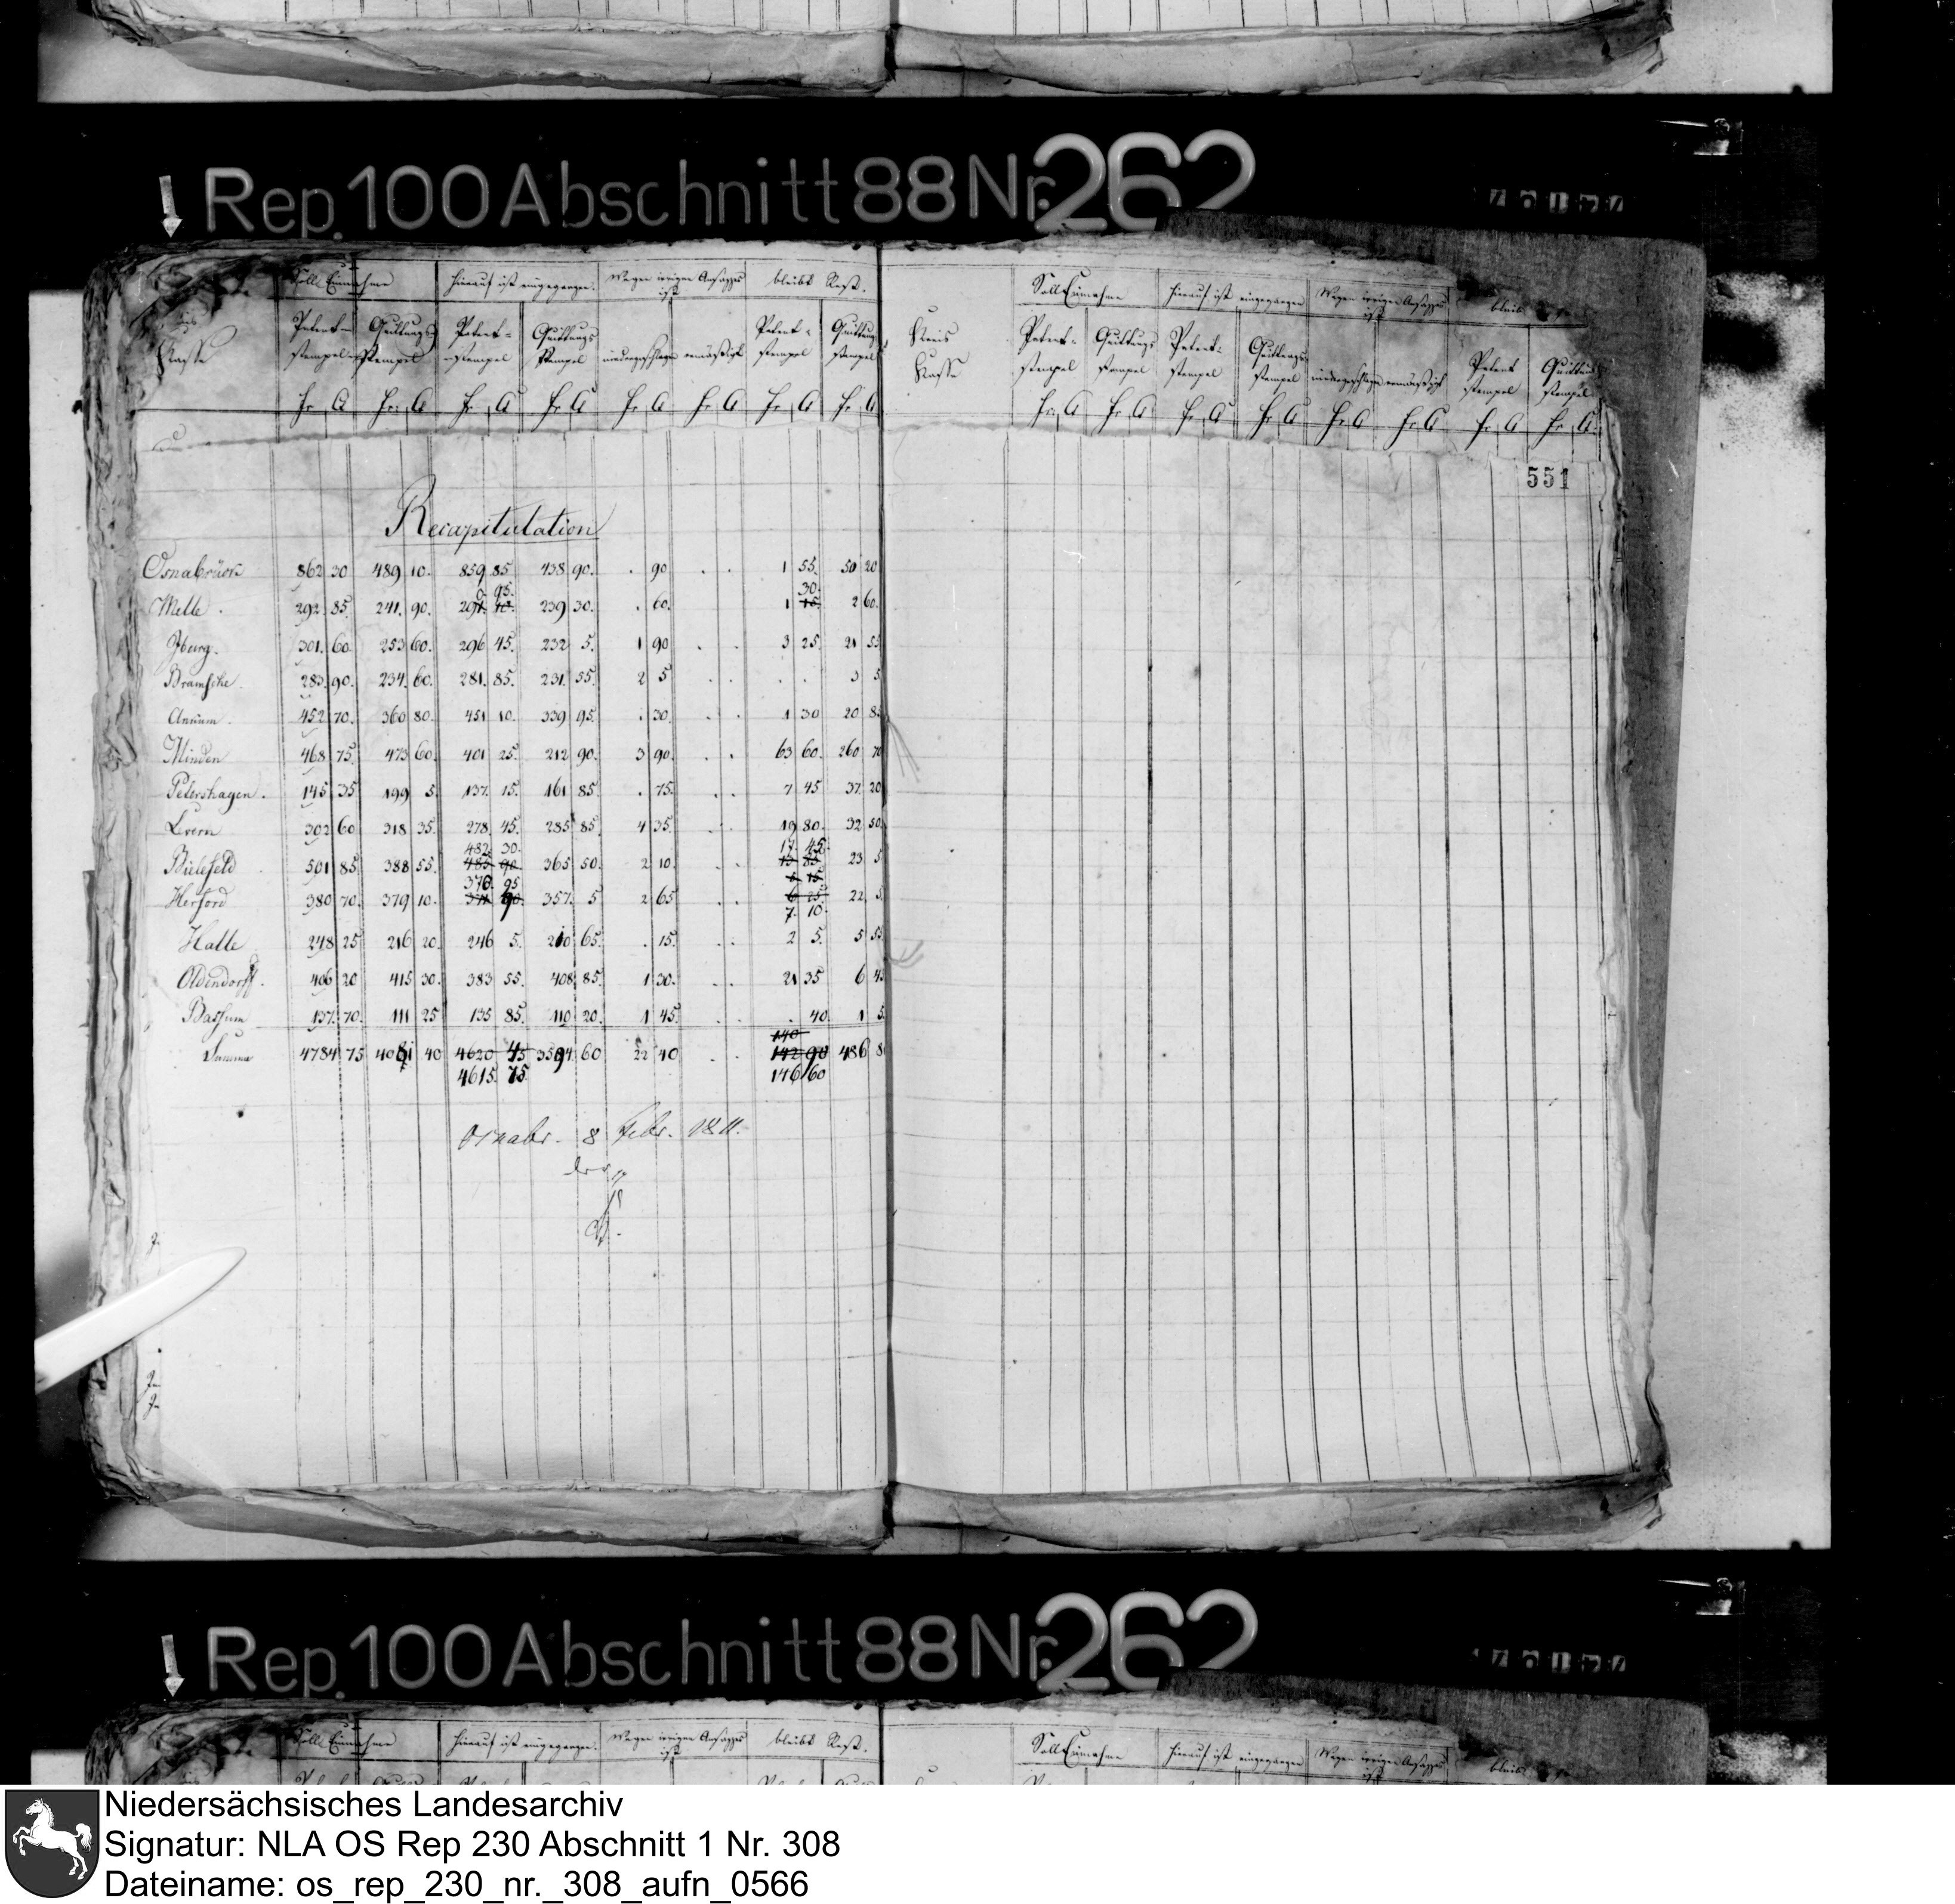 Rep. 100 Abschnitt 88 Nr. 262
Soll Einnahme hierauf ist eingegangen. Wegen irrigen Ansatzes ist bleibt Rest.
Kasse Patent-stempel Quittungs-stempel Patent-stempel Quittungs Stempel niedergeschlagen ermäßigt Patent-stempel Quittungs stempel
fr. C. fr. C. fr. C. fr. C. fr. C. fr. C. fr. C. fr. C.
Kreis Kasse Soll Einnahme hierauf ist eingegangen Wegen irrigen Ansatzes ist bleibt
Patent-stempel Quittungs stempel Patent-stempel Quittungs-stempel niedergeschlagen ermäßigt Patent stempel Quittungs stempel
fr. C. fr. C. fr. C. fr. C. fr. C. fr. C. fr. C. fr. C.
551
Recapitulation
Osnabrück 862 30 489 10. 859 85 438 90. . 90 . . 1 55. 50 20
Melle. 292. 85. 241. 90. 290. 95. 239 30. . 60. 1 30. 2 60.
Iburg. 301. 60. 253 60. 296 45. 232 5. 1 90 . . 3 25. 21 55
Bramsche. 283. 90. 234. 60. 281. 85. 231. 55. 2 5 . . . . 3 5
Ankum. 452 70. 360 80. 451 10. 339 95. . 30. . . 1 30 20 85
Minden 468 75. 473 60. 401 25. 212 90. 3 90. . . 63 60. 260 70
Petershagen. 145 35 199 5. 137. 15. 161 85. . 75. . . 7 45 37. 20
Levern 302 60 318 35. 278. 45. 285 85. 4 35. . . 19 80. 32 50.
Bielefeld 501 85. 388 55. 482. 30. 365 50. 2 10. . . 17. 45. 23 5
Herford 380 70. 379 10. 370. 95 357. 5 2 65 . . 7. 10. 22 5.
Halle 248 25 216 20. 246 5. 210 65. . 15. . . 2 5. 5 55
Oldendorff. 406 20 415 30. 383 55. 408. 85. 1 30. . . 21 35 6 45
Bassum 137. 70. 111 25 135 85. 110 20. 1 45. . . . 40. 1 5.
Summa 4784 75 4081 40 4620 45 3594 60 22 40 . . 142 90 486 80
4615. 75. 146 60
Osnabr. 8 Febr. 1811.
Rep. 100 Abschnitt 88 Nr. 262
Soll Einnahme hierauf ist eingegangen. Wegen irrigen Ansatzes ist bleibt Rest.
Soll Einnahme hierauf ist eingegangen Wegen irrigen Ansatzes ist bleibt
Niedersächsisches Landesarchiv
Signatur: NLA OS Rep 230 Abschnitt 1 Nr. 308
Dateiname: os_rep_230_nr._308_aufn_0566